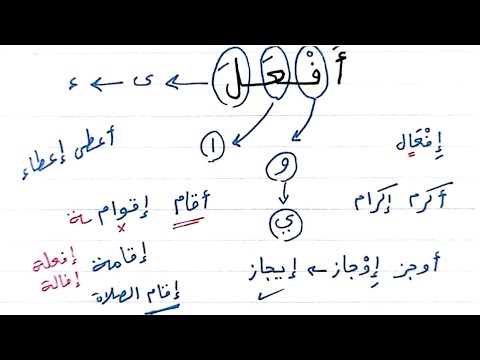 أَفْعَلَ ← ى ← ء
ا
و
ي
إِفْعَال
أعطى إعطاء
أكرم إكرام
أقام إقوام ـة
أوجز إِوْجاز ← إيجاز ✓
إقامة إفعلة
إفالة
إقام الصلاة